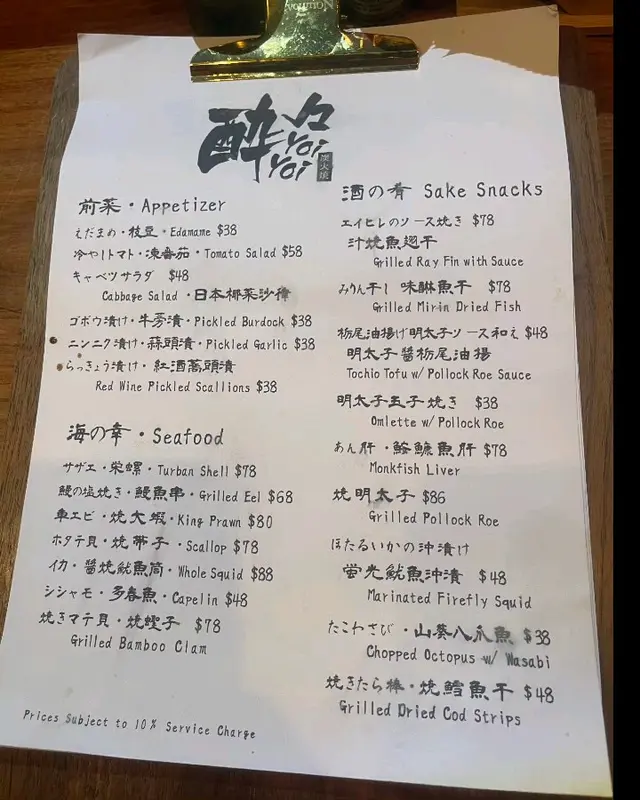 酔々
yoi
yoi
炭火焼
前菜・Appetizer
えだまめ・枝豆・Edamame $38
冷やしトマト・凍番茄・Tomato Salad $58
キャベツサラダ $48
Cabbage Salad・日本椰菜沙律
ゴボウ漬け・牛蒡漬・Pickled Burdock $38
ニンニク漬け・蒜頭漬・Pickled Garlic $38
らっきょう漬け・紅酒蕎頭漬
Red Wine Pickled Scallions $38
海の幸・Seafood
サザエ・栄螺・Turban Shell $78
鰻の塩焼き・鰻魚串・Grilled Eel $68
車エビ・焼大蝦・King Prawn $80
ホタテ貝・焼帯子・Scallop $78
イカ・醤焼魷魚筒・Whole Squid $88
シシャモ・多春魚・Capelin $48
焼きマテ貝・焼蟶子 $78
Grilled Bamboo Clam
Prices Subject to 10% Service Charge
酒の肴 Sake Snacks
エイヒレのソース焼き $78
汁焼魚翅干
Grilled Ray Fin with Sauce
みりん干し 味醂魚干 $78
Grilled Mirin Dried Fish
栃尾油揚げ明太子ソース和え $48
明太子醬栃尾油揚
Tochio Tofu w/ Pollock Roe Sauce
明太子玉子焼き $38
Omlette w/ Pollock Roe
あん肝・鮟鱇魚肝 $78
Monkfish Liver
焼明太子 $86
Grilled Pollock Roe
ほたるいかの沖漬け
蛍光魷魚沖漬 $48
Marinated Firefly Squid
たこわさび・山葵八爪魚 $38
Chopped Octopus w/ Wasabi
焼きたら棒・焼鱈魚干 $48
Grilled Dried Cod Strips